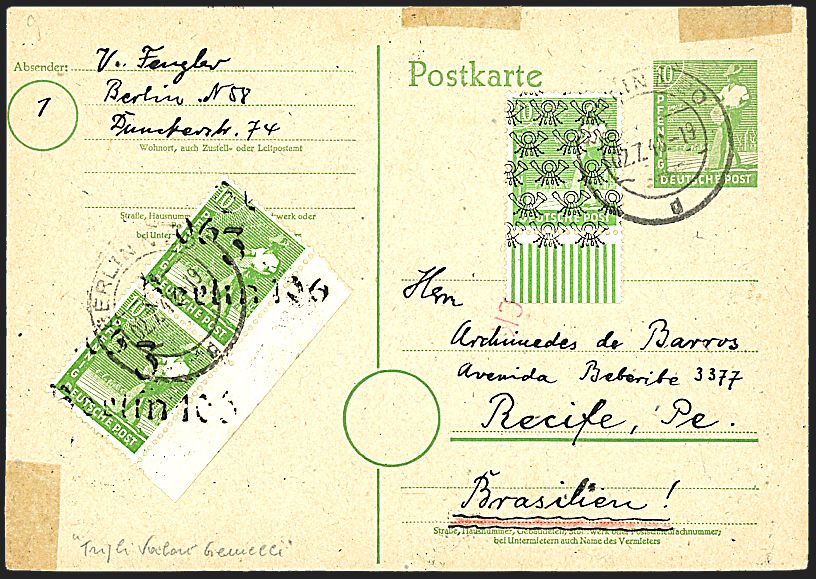 Absender: V. Fengler
Berlin N58
Dunckerstr. 74
1
Wohnort, auch Zustell- oder Leitpostamt
Straße, Hausnummer
Postkarte
10
PFENNIG
DEUTSCHE POST
10
DEUTSCHE POST
02.7.48.-19
10
Berlin 106
10
Berlin 103
DEUTSCHE POST
Herrn
Archimedes de Barros
Avenida Beberibe 3377
Recife, Pe.
Brasilien!
Straße, Hausnummer, Gebäudeteil, Stockwerk oder Postschließfachnummer;
bei Untermietern auch Name des Vermieters